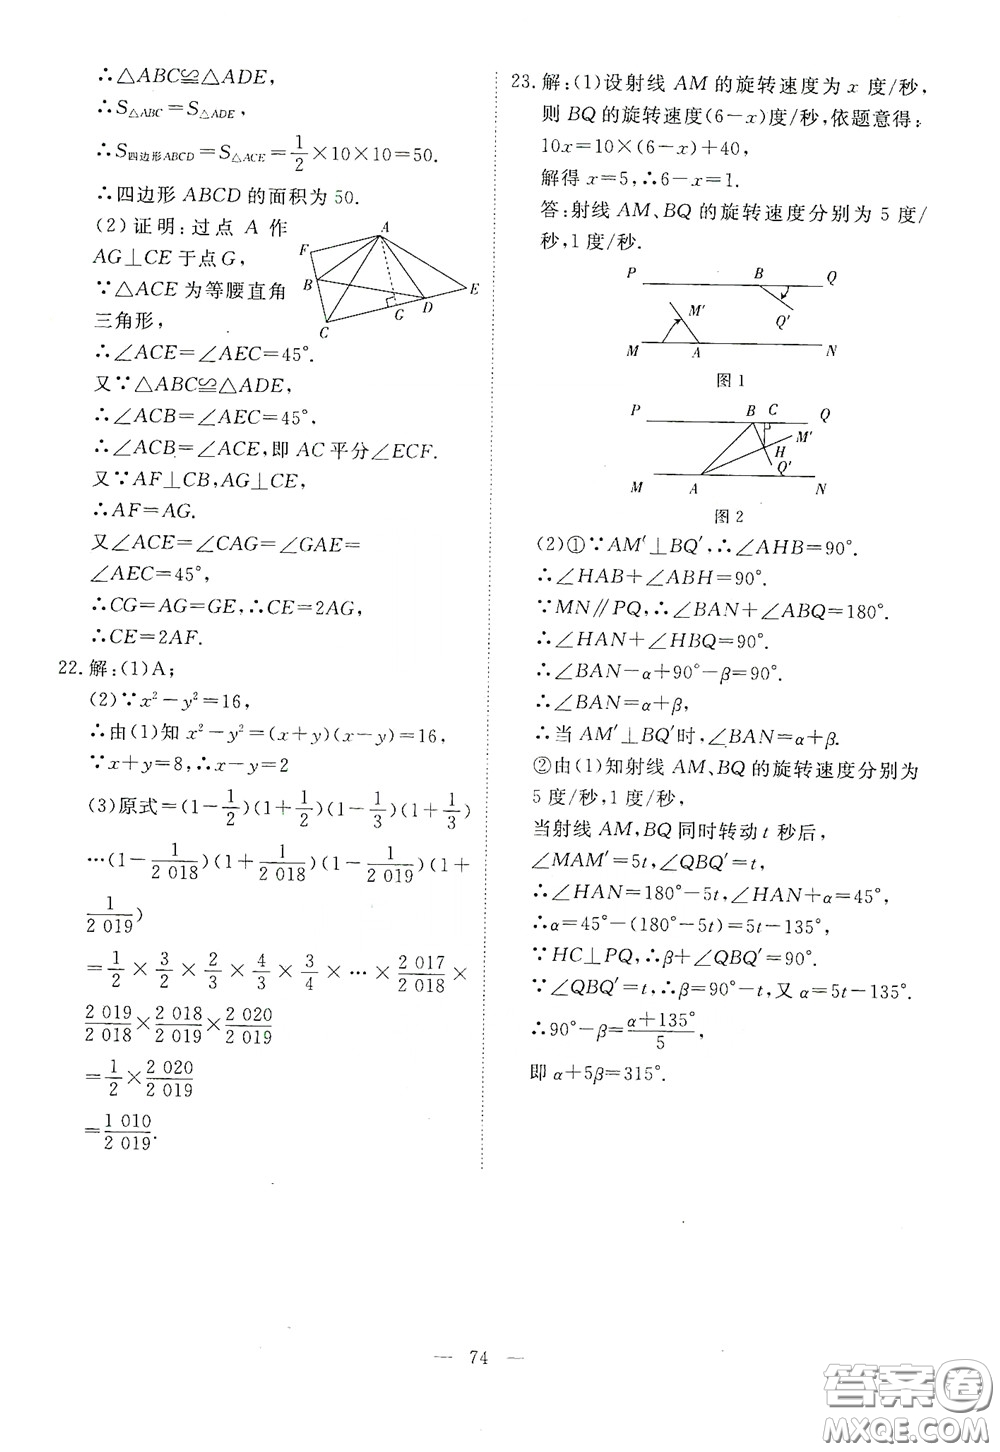 ∴△ABC≌△ADE,
∴S△ABC=S△ADE,
∴S四边形ABCD=S△ACE=1/2×10×10=50.
∴四边形 ABCD 的面积为 50.
(2)证明:过点 A 作
AG⊥CE 于点 G,
∵△ACE 为等腰直角
三角形,
∴∠ACE=∠AEC=45°.
又∵△ABC≌△ADE,
∴∠ACB=∠AEC=45°.
∴∠ACB=∠ACE,即 AC 平分∠ECF.
又∵AF⊥CB,AG⊥CE,
∴AF=AG.
又∠ACE=∠CAG=∠GAE=
∠AEC=45°,
∴CG=AG=GE,∴CE=2AG,
∴CE=2AF.
A
F
B
E
G
D
C
22.解:(1)A;
(2)∵x²-y²=16,
∴由(1)知 x²-y²=(x+y)(x-y)=16,
∵x+y=8,∴x-y=2
(3)原式=(1-1/2)(1+1/2)(1-1/3)(1+1/3)
…(1-1/2 018)(1+1/2 018)(1-1/2 019)(1+
1/2 019)
=1/2×3/2×2/3×4/3×3/4×…×2 017/2 018×
2 019/2 018×2 018/2 019×2 020/2 019
=1/2×2 020/2 019
=1 010/2 019.
23.解:(1)设射线 AM 的旋转速度为 x 度/秒,
则 BQ 的旋转速度(6-x)度/秒,依题意得:
10x=10×(6-x)+40,
解得 x=5,∴6-x=1.
答:射线 AM、BQ 的旋转速度分别为 5 度/
秒,1 度/秒.
P B Q
M′ Q′
M A N
图 1
P B C Q
M′
H
Q′
M A N
图 2
(2)①∵AM′⊥BQ′,∴∠AHB=90°.
∴∠HAB+∠ABH=90°.
∵MN∥PQ,∴∠BAN+∠ABQ=180°.
∴∠HAN+∠HBQ=90°.
∴∠BAN-α+90°-β=90°.
∴∠BAN=α+β,
∴当 AM′⊥BQ′时,∠BAN=α+β.
②由(1)知射线 AM、BQ 的旋转速度分别为
5 度/秒,1 度/秒,
当射线 AM,BQ 同时转动 t 秒后,
∠MAM′=5t,∠QBQ′=t,
∴∠HAN=180°-5t,∠HAN+α=45°,
∴α=45°-(180°-5t)=5t-135°,
∵HC⊥PQ,∴β+∠QBQ′=90°.
∵∠QBQ′=t,∴β=90°-t,又 α=5t-135°.
∴90°-β=α+135°/5,
即 α+5β=315°.
— 74 —
答案卷
MXQE.COM